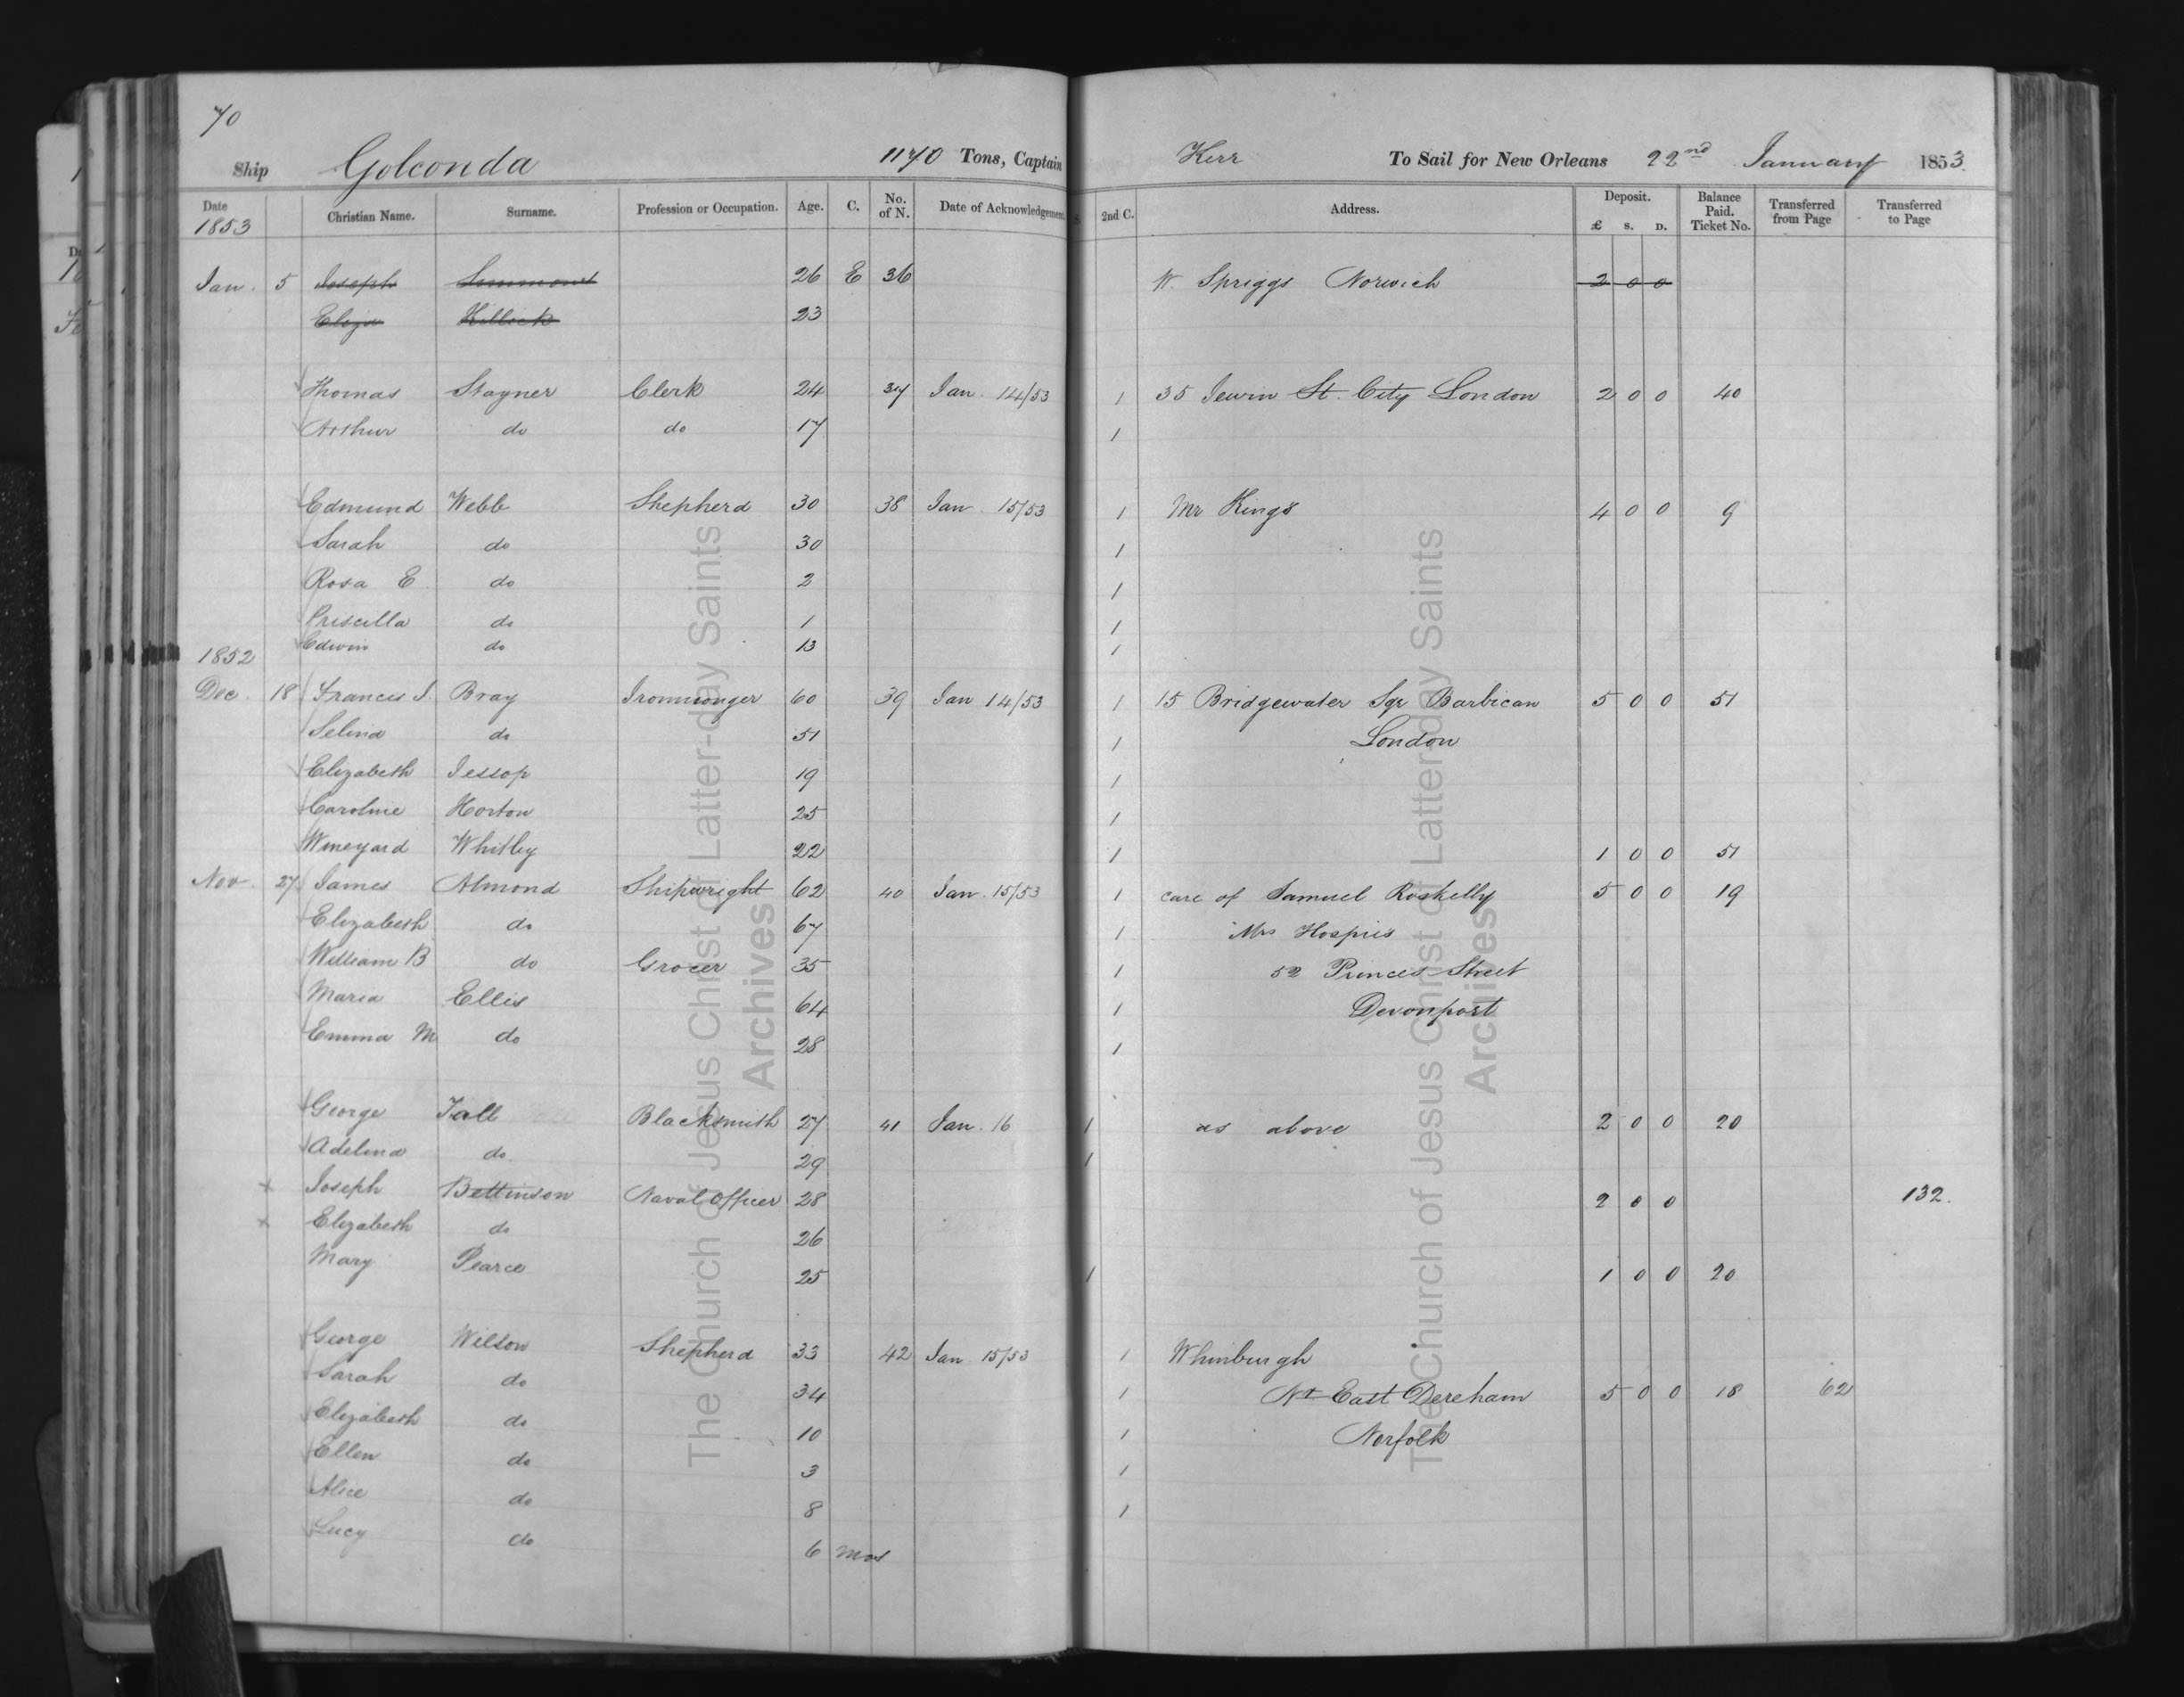 70
Ship Golconda 1170 Tons, Captain Kerr To Sail for New Orleans 22nd January 1853.
Date 1853 Christian Name. Surname. Profession or Occupation. Age. C. No. of N. Date of Acknowledgement. 2nd C. Address. Deposit. £ S. D. Balance Paid. Ticket No. Transferred from Page Transferred to Page
Jan. 5 Joseph Simmons 26 E 36 W Spriggs Norwich 2 0 0
Eliza Killock 23
Thomas Stayner Clerk 24 37 Jan. 14/53 1 35 Jewin St. City London 2 0 0 40
Arthur do do 17 1
Edmund Webb Shepherd 30 38 Jan 15/53 1 Mr Kings 4 0 0 9
Sarah do 30 1
Rosa E do 2 1
Priscilla do 1 1
Edwin do 13 1
1852
Dec. 18 Francis J. Bray Ironmonger 60 39 Jan 14/53 1 15 Bridgewater Sqr Barbican 5 0 0 51
Selina do 51 1 London
Elizabeth Jessop 19 1
Caroline Horton 25 1
Wineyard Whitby 22 1 1 0 0 51
Nov. 27 James Almond Shipwright 62 40 Jan. 15/53 1 care of Samuel Roskelly 5 0 0 19
Elizabeth do 67 1 Mrs
William B do Grocer 35 1 52 Princes Street
Maria Ellis 64 1 Devonport
Emma M do 28 1
George Tall Blacksmith 27 41 Jan. 16 1 as above 2 0 0 20
Adelina do. 29 1
x Joseph Bettinson Naval Officer 28 2 0 0 132.
x Elizabeth do 26
Mary Pearce 25 1 1 0 0 20
George Wilson Shepherd 33 42 Jan 15/53 1 Whinburgh
Sarah do 34 1 Nr East Dereham 5 0 0 18 62
Elizabeth do 10 1 Norfolk
Ellen do 3 1
Alice do 8 1
Lucy do 6 mos
The Church of Jesus Christ of Latter-day Saints
Archives
The Church of Jesus Christ of Latter-day Saints
Archives